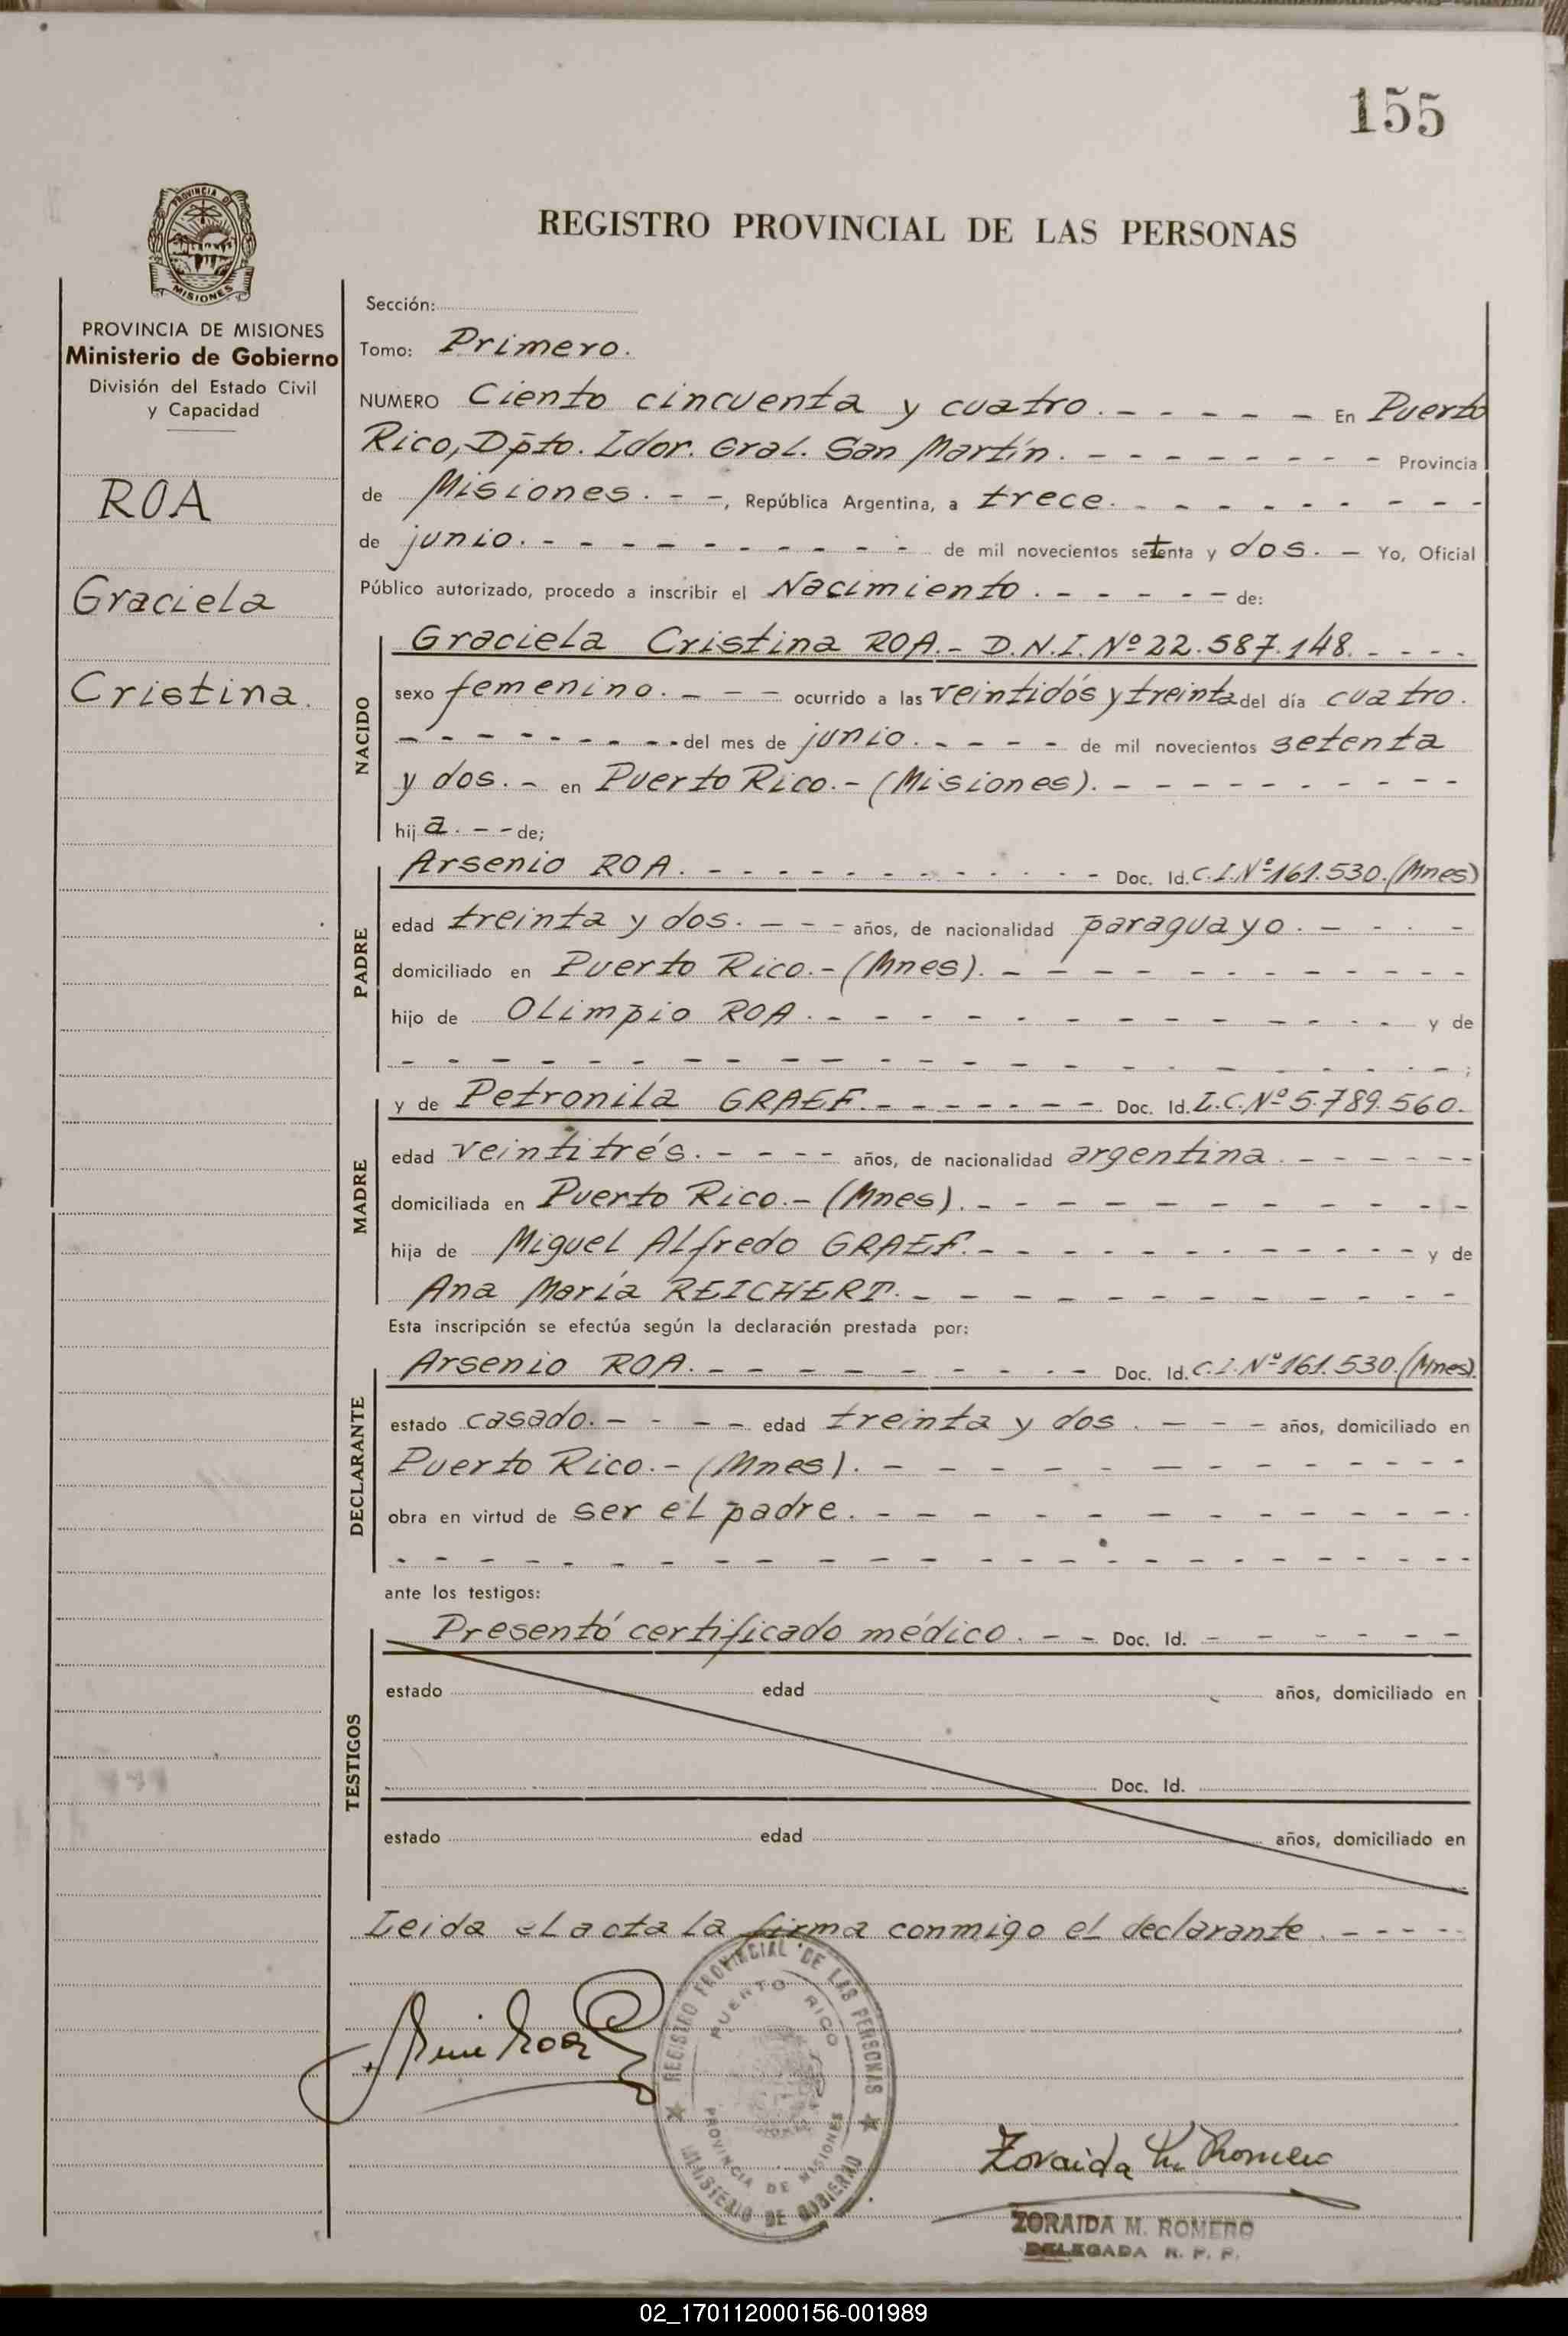 155
PROVINCIA DE
MISIONES
REGISTRO PROVINCIAL DE LAS PERSONAS
PROVINCIA DE MISIONES
Ministerio de Gobierno
División del Estado Civil
y Capacidad
ROA
Graciela
Cristina.
Sección:
Tomo: Primero.
NUMERO Ciento cincuenta y cuatro. - - - - - En Puerto
Rico, Dpto. Ldor. Gral. San Martín. - - - - - - - - Provincia
de Misiones. - -, República Argentina, a trece. - - - - - - - - -
de junio. - - - - - - - - - - de mil novecientos setenta y dos. - Yo, Oficial
Público autorizado, procedo a inscribir el Nacimiento. - - - - - de:
NACIDO
Graciela Cristina ROA. - D.N.I. Nº 22.587.148. - - - -
sexo femenino. - - - ocurrido a las veintidós y treinta del día cuatro.
- - - - - - - - - del mes de junio. - - - - de mil novecientos setenta
y dos. - en Puerto Rico. - (Misiones). - - - - - - - - -
hija. - - de;
PADRE
Arsenio ROA. - - - - - - - - - - - Doc. Id. C.I. Nº 161.530. (Mnes)
edad treinta y dos. - - - años, de nacionalidad paraguayo. - - - -
domiciliado en Puerto Rico. - (Mnes). - - - - - - - - - - -
hijo de Olimpio ROA. - - - - - - - - - - - - - y de
- - - - - - - - - - - - - - - - - - - - - - - ;
MADRE
y de Petronila GRAEF. - - - - - - - Doc. Id. L.C. Nº 5.789.560.
edad veintitrés. - - - - años, de nacionalidad argentina. - - - - - -
domiciliada en Puerto Rico. - (Mnes). - - - - - - - - - - -
hija de Miguel Alfredo GRAEF. - - - - - - - - - - - y de
Ana María REICHERT. - - - - - - - - - - - -
Esta inscripción se efectúa según la declaración prestada por:
DECLARANTE
Arsenio ROA. - - - - - - - - - - Doc. Id. C.I. Nº 161.530. (Mnes).
estado casado. - - - - edad treinta y dos. - - - años, domiciliado en
Puerto Rico. - (Mnes). - - - - - - - - - - - - - -
obra en virtud de ser el padre. - - - - - - - - - - - - -
- - - - - - - - - - - - - - - - - - - - - - - -
ante los testigos:
TESTIGOS
Presentó certificado médico. - - Doc. Id. - - - - - -
estado edad años, domiciliado en
Doc. Id.
estado edad años, domiciliado en
Leida el acta la firma conmigo el declarante. - - - -
REGISTRO PROVINCIAL DE LAS PERSONAS
PUERTO RICO
PROVINCIA DE MISIONES
MINISTERIO DE GOBIERNO
Roa
Zoraida M. Romero
ZORAIDA M. ROMERO
DELEGADA R. P. P.
02_170112000156-001989